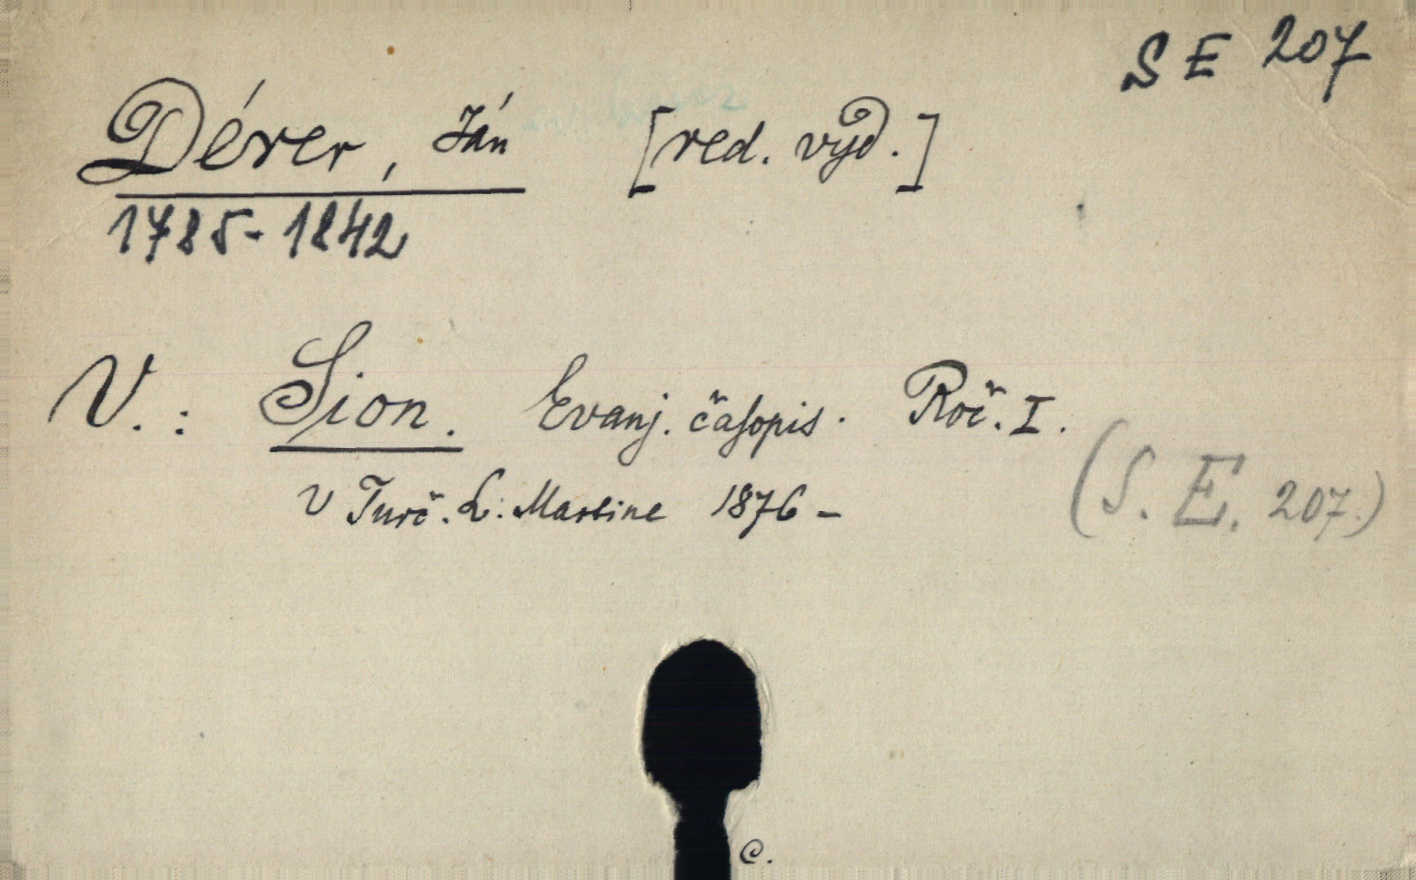 S E 207
Dérer, Ján [red. vyd.]
1785-1842
V.: Sion. Evanj. časopis. Roč. I.
v Turč. S. Martine 1876 -
(S. E. 207.)
C.